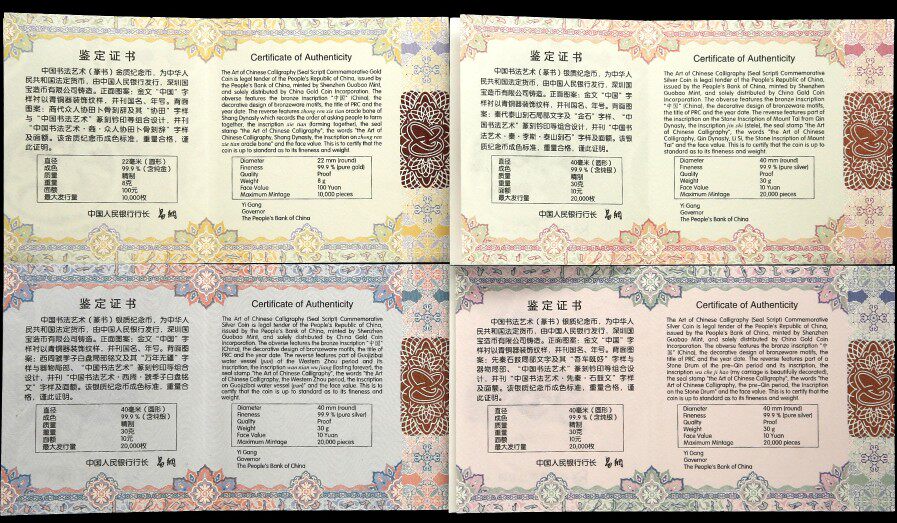 鉴定证书
中国书法艺术（篆书）金质纪念币，为中华人
民共和国法定货币，由中国人民银行发行，深圳国
宝造币有限公司铸造。正面图案：金文“中国”字
样衬以青铜器装饰纹样，并刊国名、年号。背面
图案：商代众人协田卜骨刻辞及其“协田”字样
与“中国书法艺术”篆刻钤印等组合设计，并刊
“中国书法艺术·商·众人协田卜骨刻辞”字样
及面额。该智质纪念币成色标准，重量合格，谨
此证明。
直径 22毫米（圆形）
成色 99.9％（含纯金）
质量 精制
重量 8克
面额 100元
最大发行量 10,000枚
中国人民银行行长
Certificate of Authenticity
The Art of Chinese Calligraphy (Seal Script) Commemorative Gold
Coin is legal tender of the People's Republic of China, issued
by the People's Bank of China, minted by Shenzhen Guobao Mint,
and solely distributed by China Gold Coin Incorporation. The
obverse features the bronze inscription "中国" (China), the
decorative design of bronzeware motifs, the title of PRC and the
year date. The reverse features oracle bone of
Shang Dynasty which records the order of asking people to farm
together, the inscription xie tian (farming together), the seal
stamp "the Art of Chinese Calligraphy", the words "the Art of
Chinese Calligraphy, Shang Dynasty, the inscription on zhong ren
xie tian oracle bone" and the face value. This is to certify that the
coin is up to standard as to its fineness and weight
Diameter 22 mm (round)
Fineness 99.9 % (pure gold)
Quality Proof
Weight 8 g
Face Value 100 Yuan
Maximum Mintage 10,000 pieces
Yi Gang
Governor
The People's Bank of China
鉴定证书
中国书法艺术（篆书）银质纪念币，为中华人
民共和国法定货币，由中国人民银行发行，深圳国
宝造币有限公司铸造。正面图案：金文“中国”字
样衬以青铜器装饰纹样，并刊国名、年号。背面图
案：秦代泰山刻石局部文字及“金石”字样、“中
国书法艺术”篆刻钤印等组合设计，并刊“中国书
法艺术·秦·李斯·泰山刻石”字样及面额。该银
质纪念币成色标准，重量合格，谨此证明。
直径 40毫米（圆形）
成色 99.9％（含纯银）
质量 精制
重量 30克
面额 10元
最大发行量 20,000枚
中国人民银行行长
Certificate of Authenticity
The Art of Chinese Calligraphy (Seal Script) Commemorative
Silver Coin is legal tender of the People's Republic of China,
issued by the People's Bank of China, minted by Shenzhen
Guobao Mint, and solely distributed by China Gold Coin
Incorporation. The obverse features the bronze inscription
"中国" (China), the decorative design of bronzeware motifs, the
title of PRC and the year date. The reverse features part of
the inscription on the Stone Inscription of Mount Tai from Qin
Dynasty, the inscription jin shi (stele), the seal stamp "the Art
of Chinese Calligraphy", the words "the Art of Chinese
Calligraphy, Qin Dynasty, Li Si, the Stone Inscription of Mount
Tai" and the face value. This is to certify that the coin is up to
standard as to its fineness and weight
Diameter 40 mm (round)
Fineness 99.9 % (pure silver)
Quality Proof
Weight 30 g
Face Value 10 Yuan
Maximum Mintage 20,000 pieces
Yi Gang
Governor
The People's Bank of China
鉴定证书
中国书法艺术（篆书）银质纪念币，为中华人
民共和国法定货币，由中国人民银行发行，深圳国
宝造币有限公司铸造。正面图案：金文“中国”字
样衬以青铜器装饰纹样，并刊国名、年号。背面图
案：西周虢季子白盘局部铭文及其“万年无疆”字样
与器物局部、“中国书法艺术”篆刻钤印等组合
设计，并刊“中国书法艺术·西周·虢季子白盘铭
文”字样及面额。该银质纪念币成色标准，重量合
格，谨此证明。
直径 40毫米（圆形）
成色 99.9％（含纯银）
质量 精制
重量 30克
面额 10元
最大发行量 20,000枚
中国人民银行行长
Certificate of Authenticity
The Art of Chinese Calligraphy (Seal Script) Commemorative
Silver Coin is legal tender of the People's Republic of China,
issued by the People's Bank of China, minted by Shenzhen
Guobao Mint, and solely distributed by China Gold Coin
Incorporation. The obverse features the bronze inscription "中国"
(China), the decorative design of bronzeware motifs, the title of
PRC and the year date. The reverse features part of Guojizibai
water vessel (pan) of the Western Zhou period and its
inscription, the inscription wan nian wu jiang (lasting forever), the
seal stamp "the Art of Chinese Calligraphy", the words "the Art
of Chinese Calligraphy, the Western Zhou period, the Inscription
on Guojizibai water vessel pan" and the face value. This is to
certify that the coin is up to standard as to its fineness and
weight
Diameter 40 mm (round)
Fineness 99.9 % (pure silver)
Quality Proof
Weight 30 g
Face Value 10 Yuan
Maximum Mintage 20,000 pieces
Yi Gang
Governor
The People's Bank of China
鉴定证书
中国书法艺术（篆书）银质纪念币，为中华人
民共和国法定货币，由中国人民银行发行，深圳国
宝造币有限公司铸造。正面图案：金文“中国”字
样衬以青铜器装饰纹样，并刊国名、年号。背面图
案：先秦石鼓局部文字及其“吾车既好”字样与
器物局部、“中国书法艺术”篆刻钤印等组合设
计，并刊“中国书法艺术·先秦·石鼓文”字样
及面额。该银质纪念币成色标准，重量合格，谨
此证明。
直径 40毫米（圆形）
成色 99.9％（含纯银）
质量 精制
重量 30克
面额 10元
最大发行量 20,000枚
中国人民银行行长
Certificate of Authenticity
The Art of Chinese Calligraphy (Seal Script) Commemorative
Silver Coin is legal tender of the People's Republic of China,
issued by the People's Bank of China, minted by Shenzhen
Guobao Mint, and solely distributed by China Gold Coin
Incorporation. The obverse features the bronze inscription "中
国" (China), the decorative design of bronzeware motifs, the title
of PRC and the year date. The reverse features part of a
Stone Drum of the pre-Qin period and its inscription, the
inscription (my carriage is beautifully decorated),
the seal stamp "the Art of Chinese Calligraphy", the words "the
Art of Chinese Calligraphy, the pre-Qin period, the Inscription
on the Stone Drum" and the face value. This is to certify that the
coin is up to standard as to its fineness and weight
Diameter 40 mm (round)
Fineness 99.9 % (pure silver)
Quality Proof
Weight 30 g
Face Value 10 Yuan
Maximum Mintage 20,000 pieces
Yi Gang
Governor
The People's Bank of China